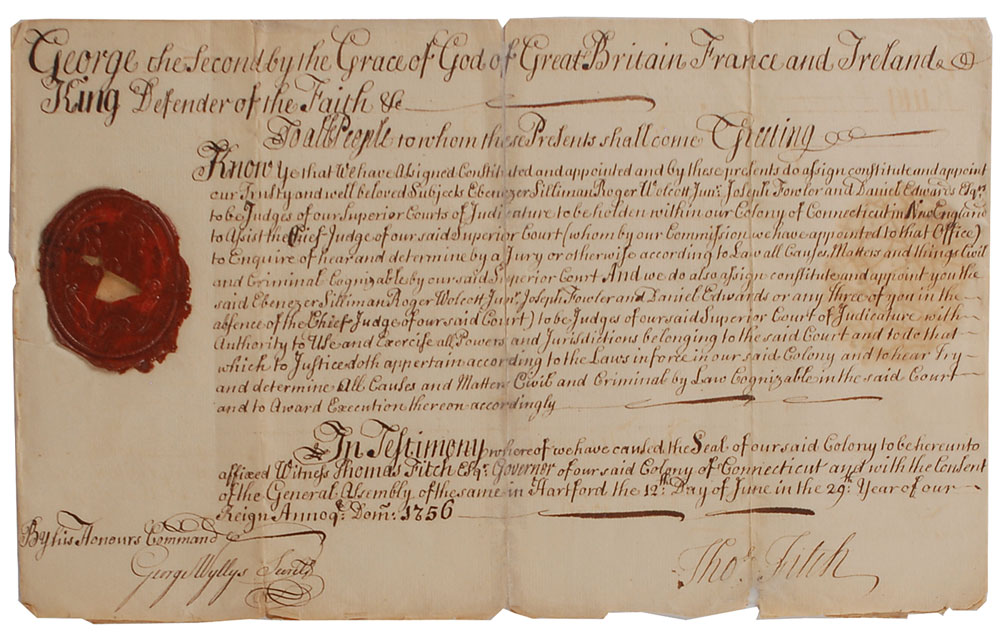 George the Second by the Grace of God of Great Britain France and Ireland
King Defender of the Faith &c
To all People to whom these Presents shall come Greeting
Know Ye that We have Assigned Constituted and appointed and by these presents do assign constitute and appoint
our Trusty and well beloved Subjects Ebenezer Silliman Roger Wolcott Junr. Joseph Fowler and Daniel Edwards Esqrs
to be Judges of our Superior Courts of Judicature to be holden within our Colony of Connecticut in New England
to Assist the Chief Judge of our said Superior Court (whom by our Commission we have appointed to that Office)
to Enquire of hear and determine by a Jury or otherwise according to Law all Causes Matters and things Civil
and Criminal Cognizable by our said Superior Court And we do also assign constitute and appoint you the
said Ebenezer Silliman Roger Wolcott Junr. Joseph Fowler and Daniel Edwards or any three of you in the
absence of the Chief Judge of our said Court) to be Judges of our said Superior Court of Judicature with
Authority to Use and Exercise all Powers and Jurisdictions belonging to the said Court and to do that
which to Justice doth appertain according to the Laws in force in our said Colony and to hear Try
and determine All Causes and Matters Civil and Criminal by Law Cognizable in the said Court
and to Award Execution thereon accordingly
In Testimony whereof we have caused the Seal of our said Colony to be hereunto
affixed Witness Thomas Fitch Esqr. Governor of our said Colony of Connecticut and with the Consent
of the General Assembly of the same in Hartford the 12th. Day of June in the 29th. Year of our
Reign Annoq. Dom: 1756
By his Honours Command
George Wyllys Secret.
Thos. Fitch